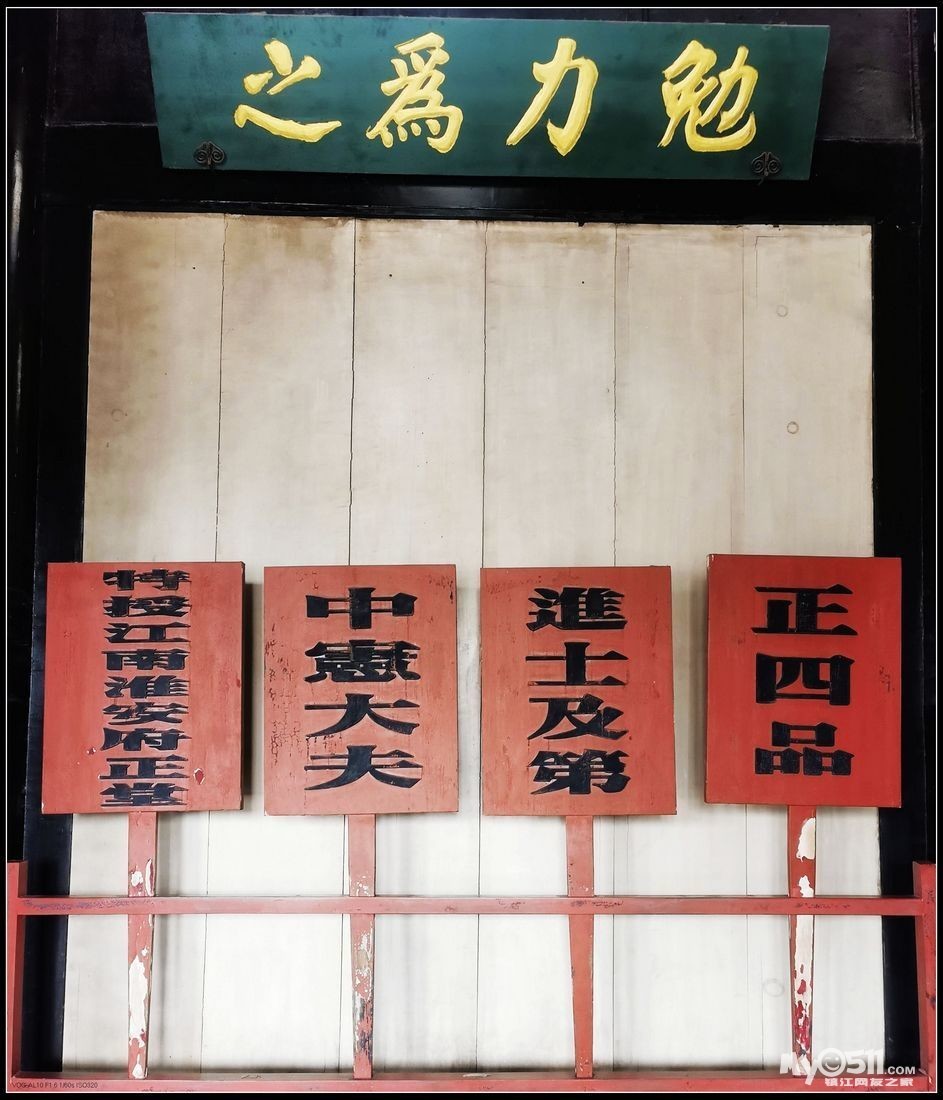 勉力爲之
正四品
進士及第
中憲大夫
特授江南淮安府正堂
VOG-AL10 F1.6 1/60s ISO320
MY0511.COM
镇江网友之家